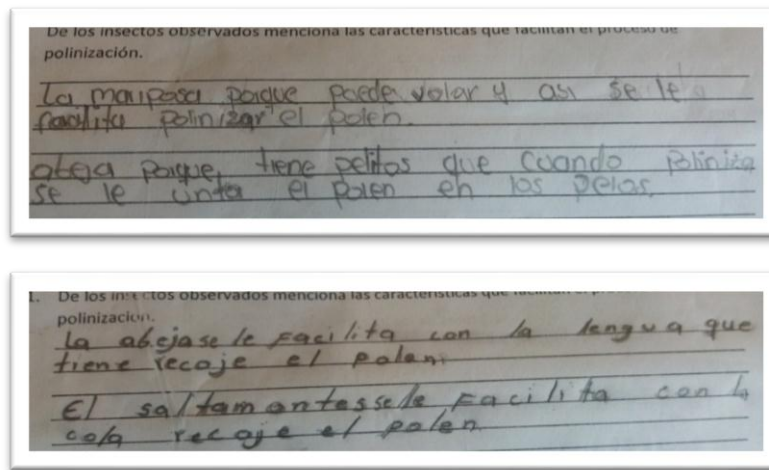 De los insectos observados menciona las características que facilitan el proceso de
polinización.
La maripasa porque poede volar y asi se le
facilita polinizar el polen.
abeja porque, tiene pelitos que cuando poliniza
se le unta el polen en los pelos.
1. De los insectos observados menciona las características que
polinización.
la abejase le facilita con la lengua que
tiene recoje el polen.
El saltamontessele facilita con la
cola recoje el polen.